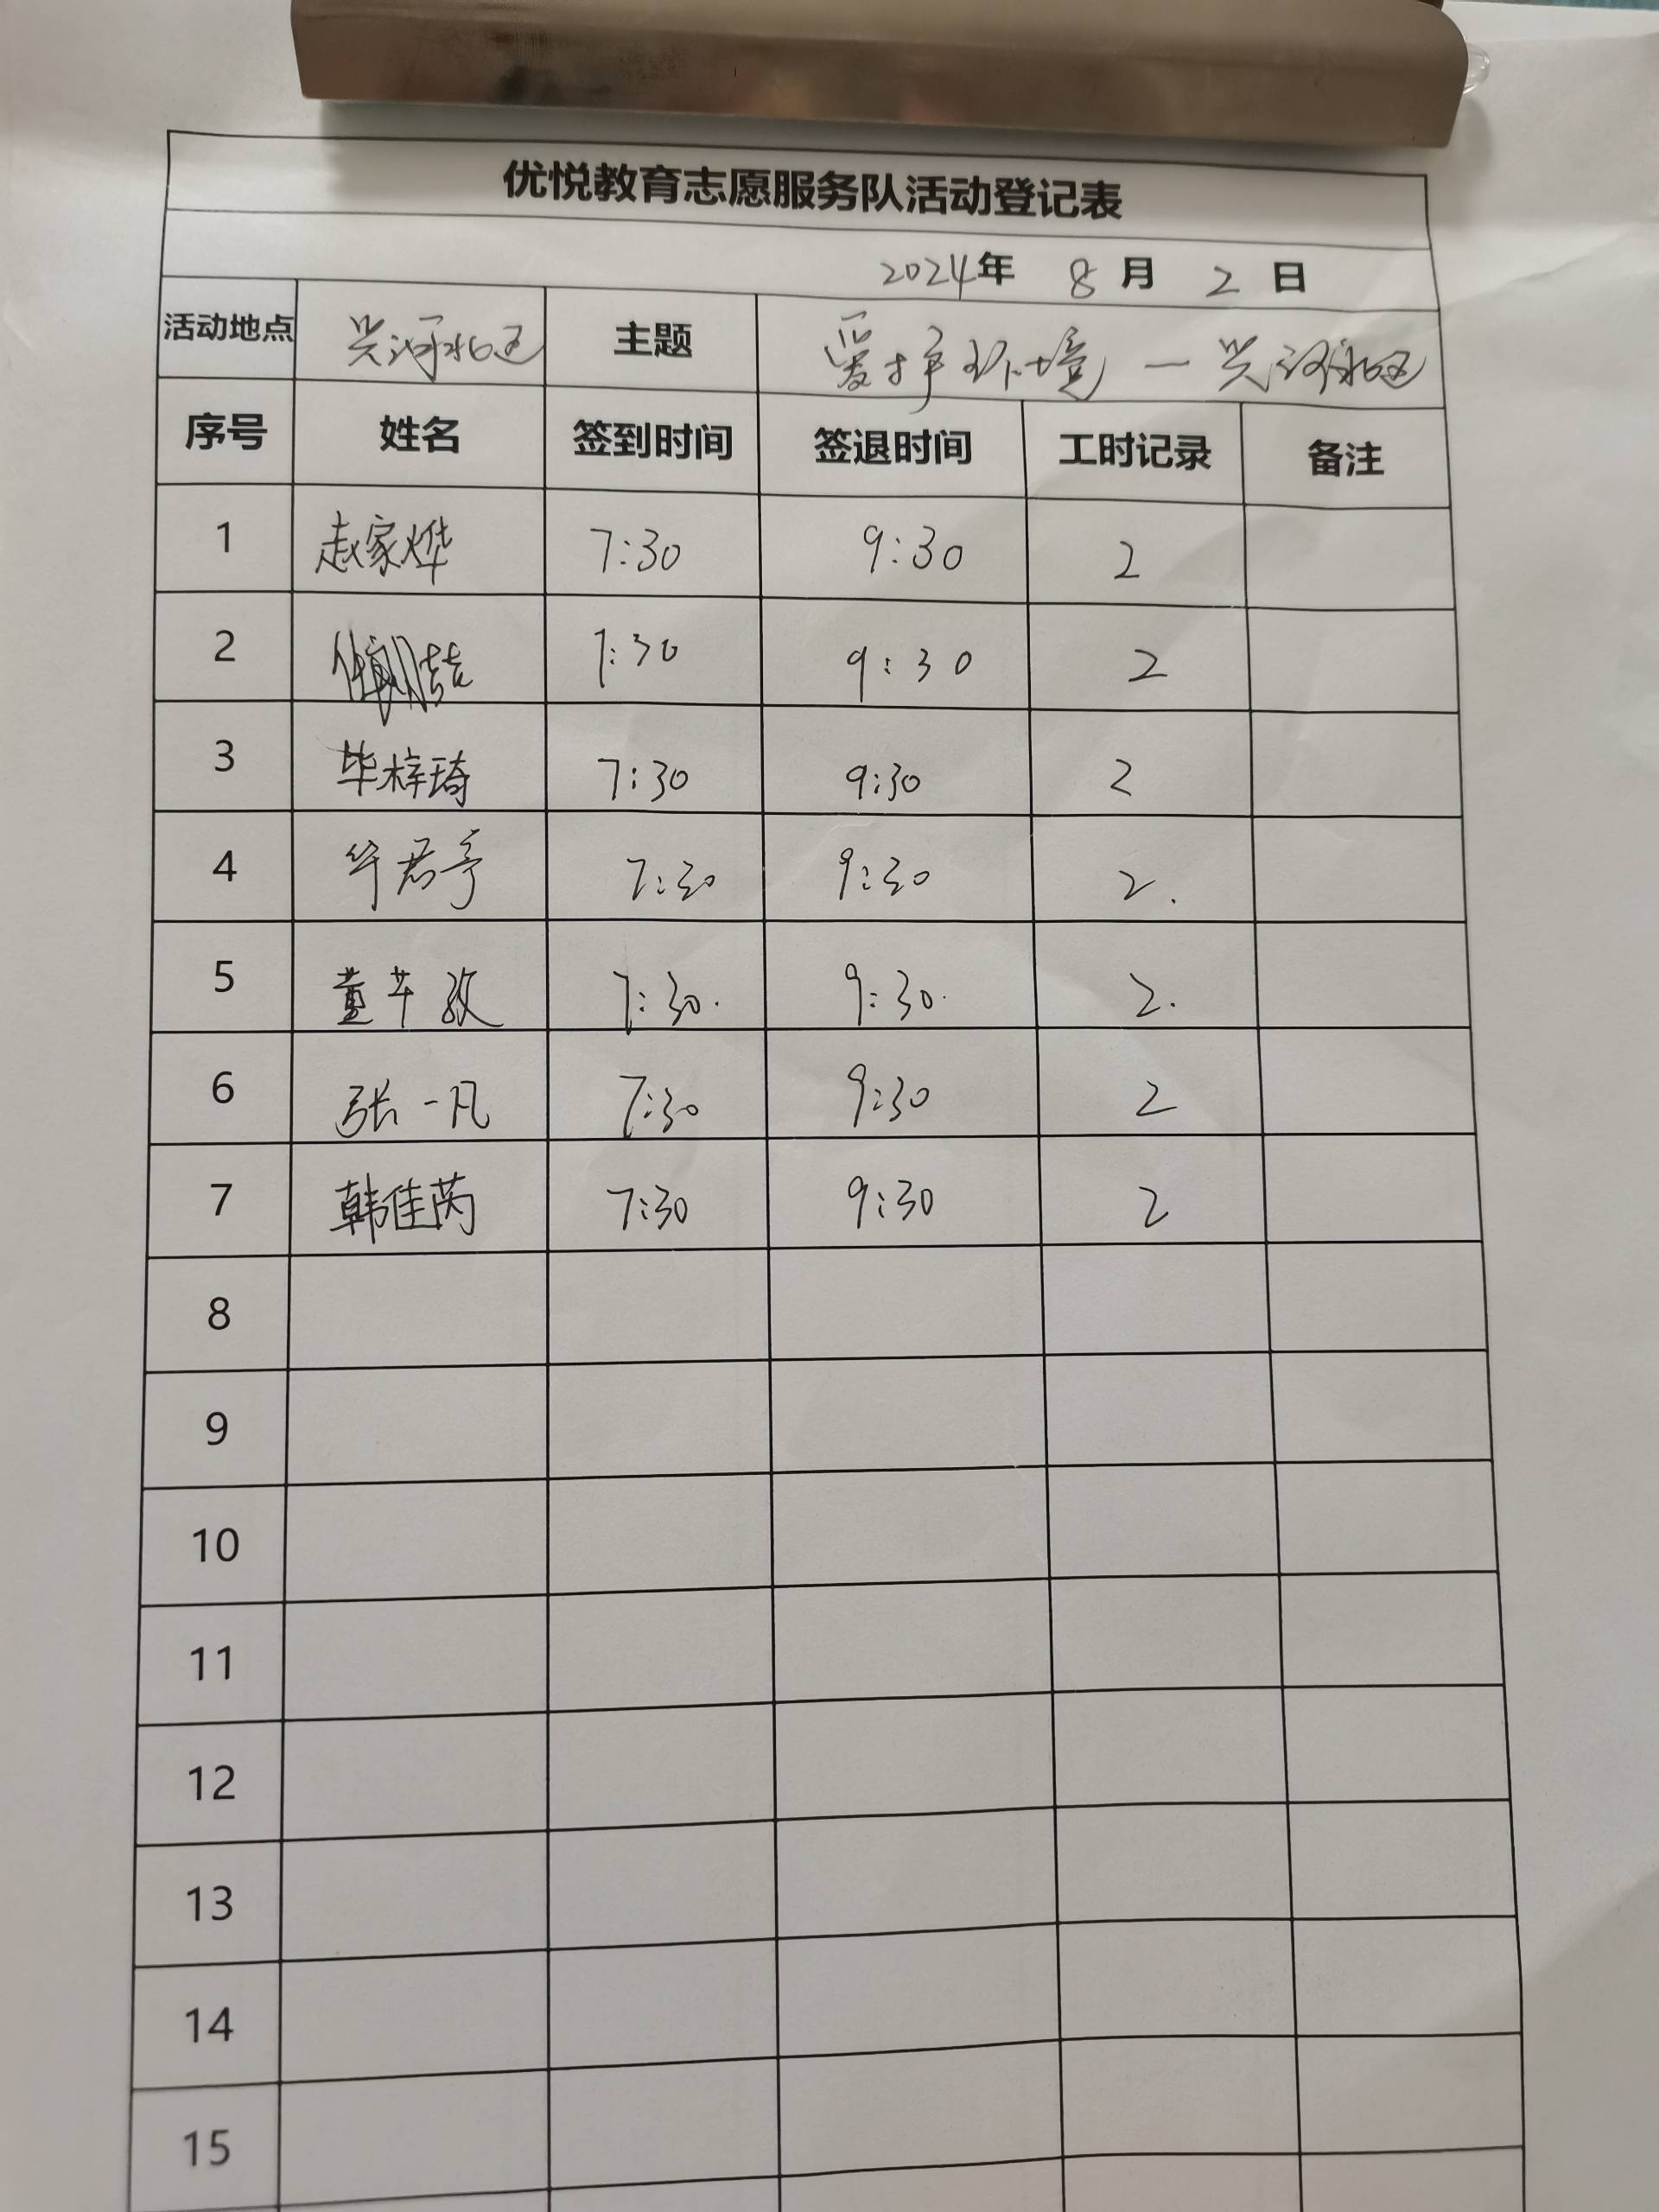 优悦教育志愿服务队活动登记表
2024年 8 月 2 日
活动地点 兴河北区 主题 爱护环境一兴河北区
序号 姓名 签到时间 签退时间 工时记录 备注
1 赵家烨 7:30 9:30 2
2 7:30 9:30 2
3 毕梓琦 7:30 9:30 2
4 华君亭 7:30 9:30 2.
5 董芊孜 7:30. 9:30. 2.
6 张一凡 7:30 9:30 2
7 韩佳芮 7:30 9:30 2
8
9
10
11
12
13
14
15